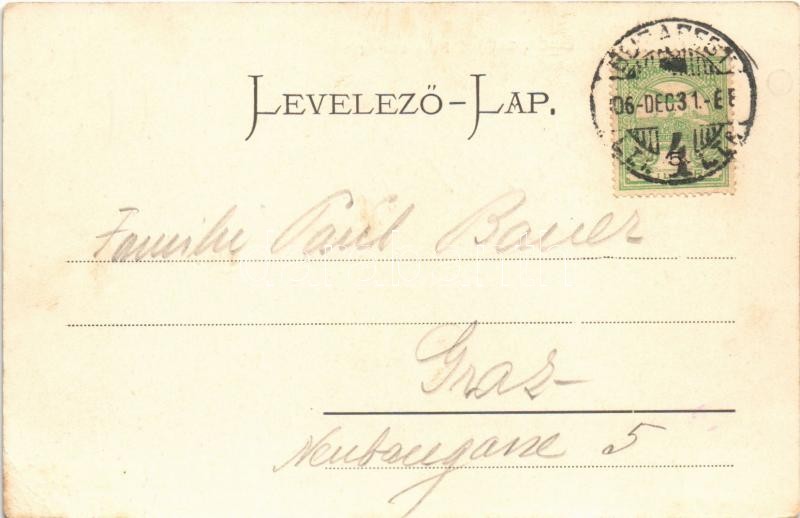 BUDAPEST
06-DEC.31.-E
4
5
LEVELEZŐ-LAP.
Familie Paul Bauer
Graz
Neubaugasse 5